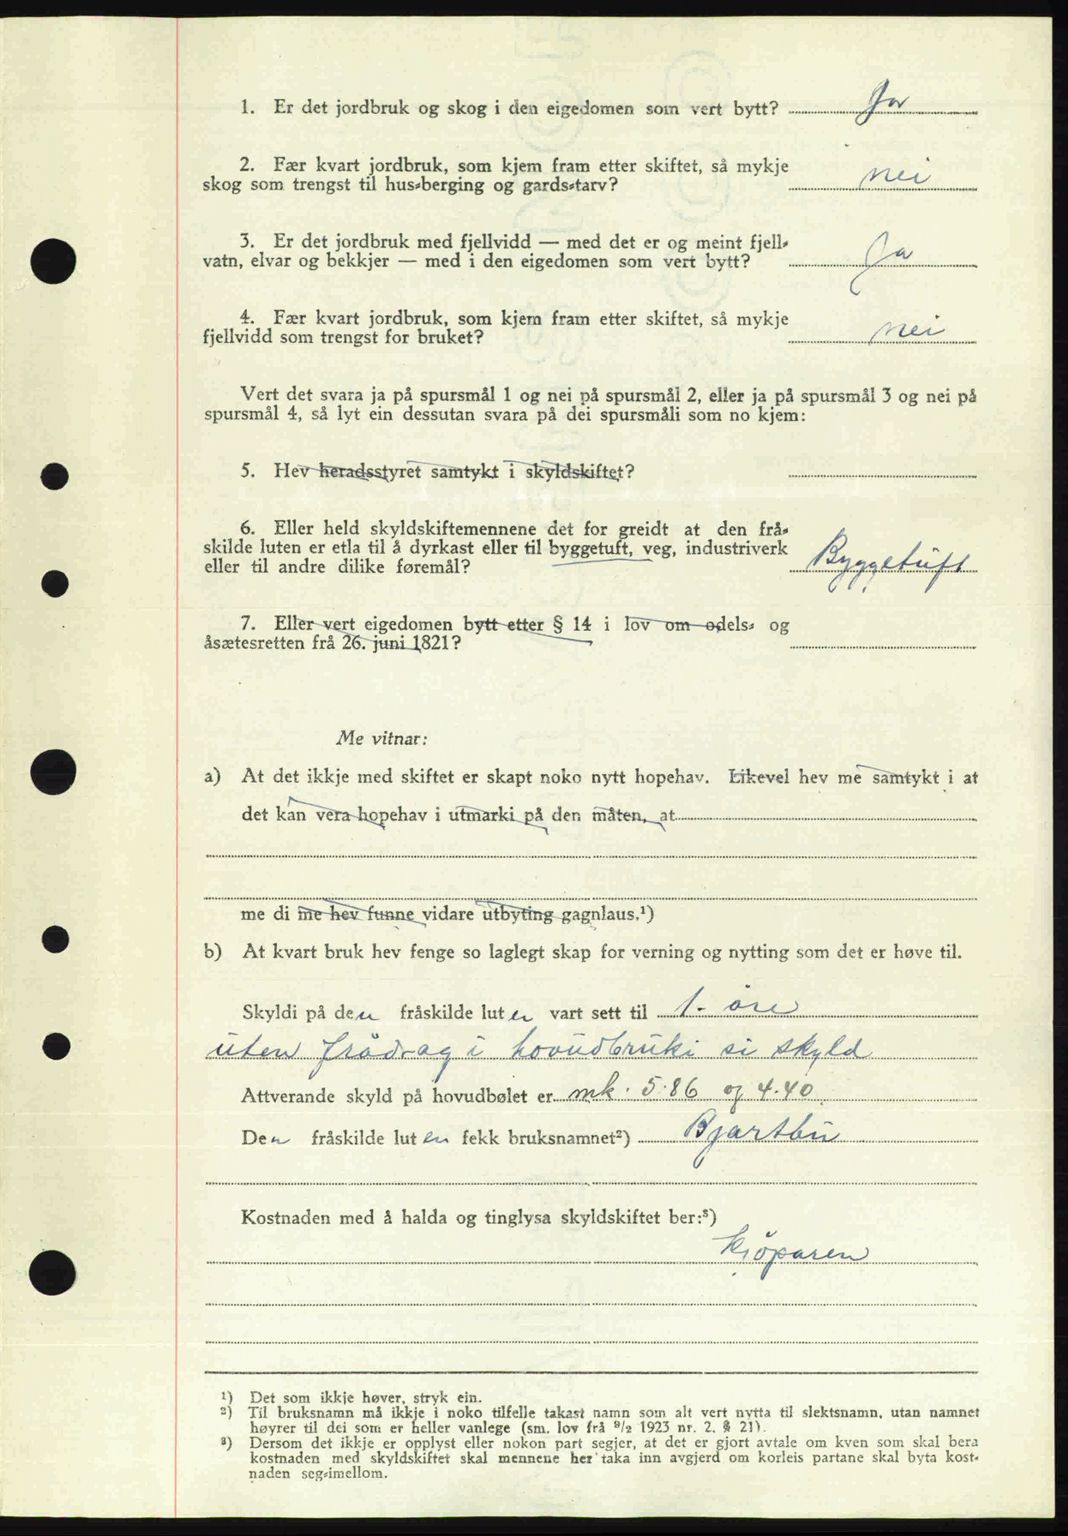 1. Er det jordbruk og skog i den eigedomen som vert bytt? Ja
2. Fær kvart jordbruk, som kjem fram etter skiftet, så mykje
skog som trengst til hus-berging og gards-tarv? nei
3. Er det jordbruk med fjellvidd — med det er og meint fjell-
vatn, elvar og bekkjer — med i den eigedomen som vert bytt? Ja
4. Fær kvart jordbruk, som kjem fram etter skiftet, så mykje
fjellvidd som trengst for bruket? nei
Vert det svara ja på spursmål 1 og nei på spursmål 2, eller ja på spursmål 3 og nei på
spursmål 4, så lyt ein dessutan svara på dei spursmåli som no kjem:
5. Hev heradsstyret samtykt i skyldskiftet?
6. Eller held skyldskiftemennene det for greidt at den frå-
skilde luten er etla til å dyrkast eller til byggetuft, veg, industriverk
eller til andre dilike føremål? Byggetuft
7. Eller vert eigedomen bytt etter § 14 i lov om odels- og
åsætesretten frå 26. juni 1821?
Me vitnar:
a) At det ikkje med skiftet er skapt noko nytt hopehav. Likevel hev me samtykt i at
det kan vera hopehav i utmarki på den måten, at
me di me hev funne vidare utbyting gagnlaus.¹)
b) At kvart bruk hev fenge so laglegt skap for verning og nytting som det er høve til.
Skyldi på den fråskilde luten vart sett til 1. öre
uten frådrag i hovudbruki si skyld
Attverande skyld på hovudbølet er mk. 5.86 og 4.40
Den fråskilde luten fekk bruksnamnet²) Bjartbu
Kostnaden med å halda og tinglysa skyldskiftet ber:³)
Kjöparen
¹) Det som ikkje høver, stryk ein.
²) Til bruksnamn må ikkje i noko tilfelle takast namn som alt vert nytta til slektsnamn, utan namnet
høyrer til dei som er heller vanlege (sm. lov frå ⁹/₂ 1923 nr. 2. § 21).
³) Dersom det ikkje er opplyst eller nokon part segjer, at det er gjort avtale om kven som skal bera
kostnaden med skyldskiftet skal mennene her taka inn avgjerd om korleis partane skal byta kost-
naden seg-imellom.